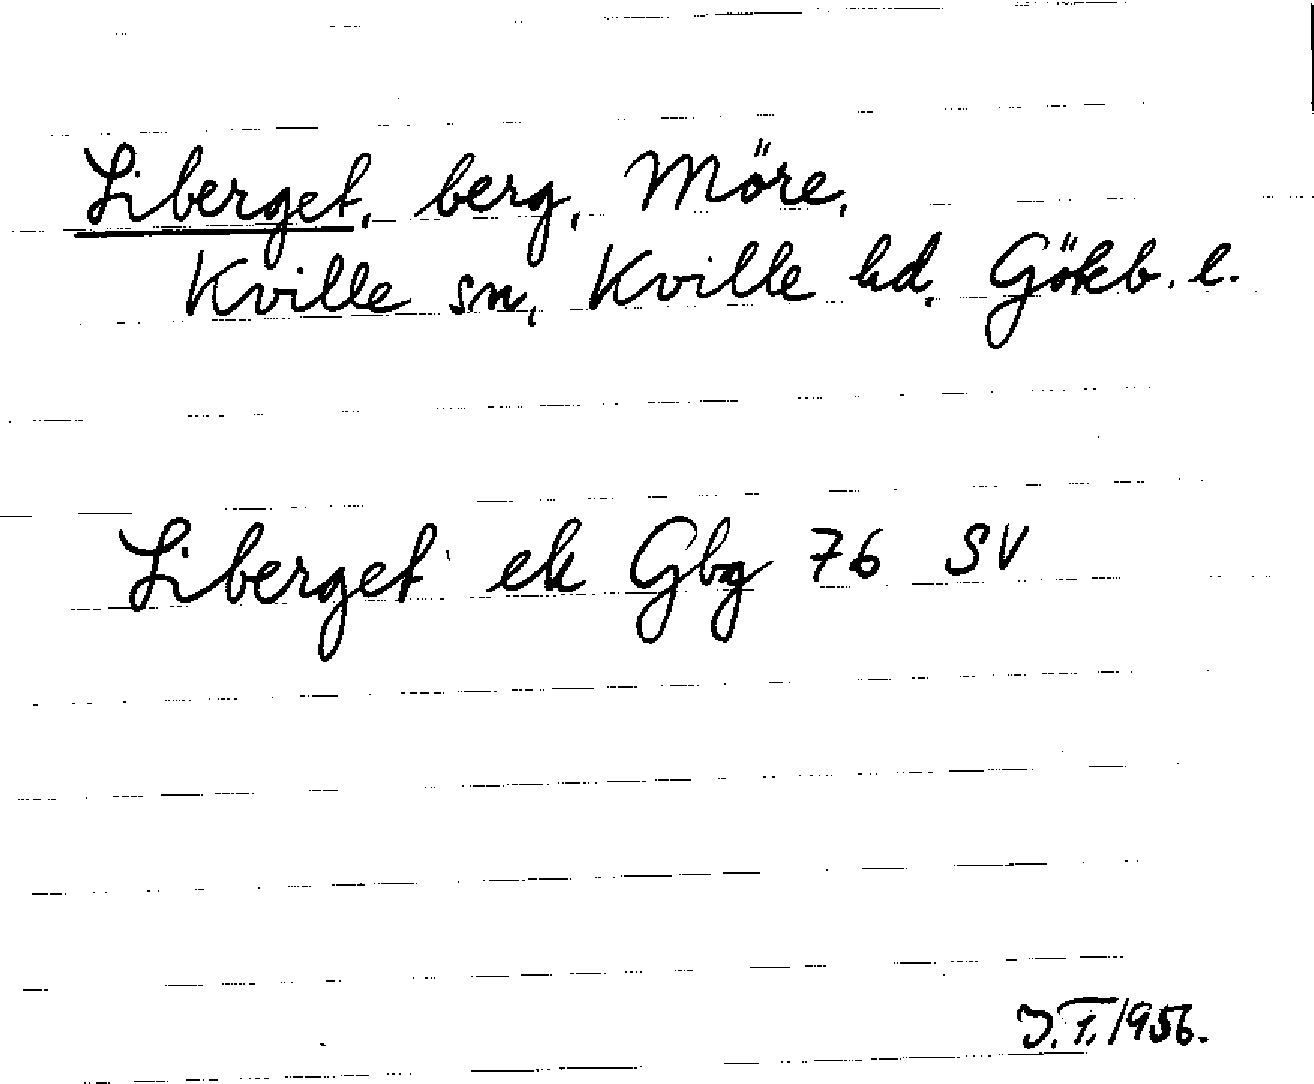 Liberget, berg, Möre,
Kville sn, Kville hd, Gökb. l.
Liberget ek Gbg 76 SV
J.T. 1956.